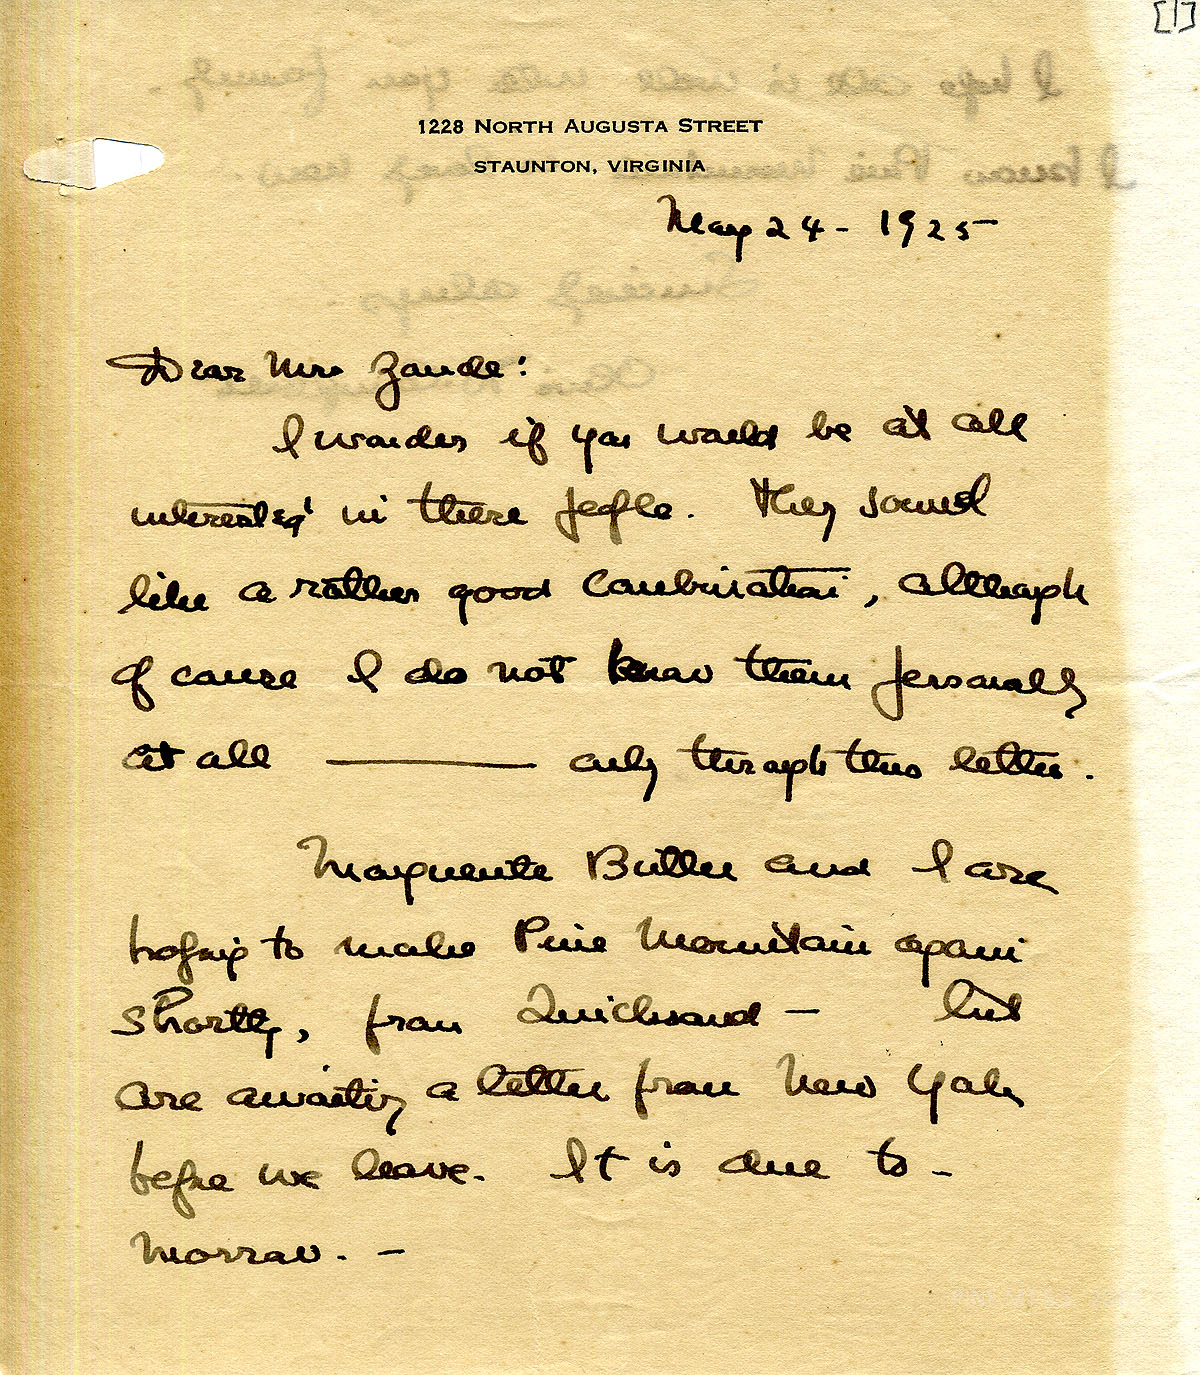 [1]
1228 NORTH AUGUSTA STREET
STAUNTON, VIRGINIA
May 24 - 1925 -
Dear Mrs Zande:
I wonder if you would be at all
interested in these people. They sound
like a rather good combination, although
of course I do not know them personally
at all — only through this letter.
Marguerite Butler and I are
hoping to make Pine Mountain again
shortly, from Quicksand — but
are awaiting a letter from New York
before we leave. It is due to -
morrow. —
I hope all is well with your family -
I know Pine Mountain now.
Sincerely always -